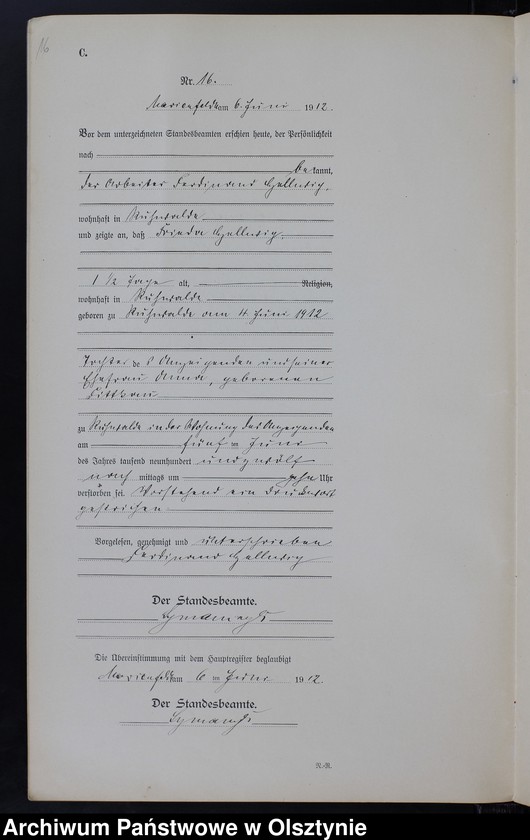 16
C.
Nr. 16.
Marienfelde am 6. Juni 1912.
Vor dem unterzeichneten Standesbeamten erschien heute, der Persönlichkeit
nach
bekannt,
der Arbeiter Ferdinand Hellwig,
wohnhaft in Ruhwalde
und zeigte an, daß Frieda Hellwig,
1 1/2 Tage alt, Religion,
wohnhaft in Ruhwalde
geboren zu Ruhwalde am 4. Juni 1912
Tochter des Anzeigenden und seiner
Ehefrau Anna, geborenen
Littkau
zu Ruhwalde in der Wohnung des Anzeigenden
am fünf ten Juni
des Jahres tausend neunhundert und zwölf
nach mittags um zehn Uhr
verstorben sei. Vorstehend ein Druckwort
gestrichen
Vorgelesen, genehmigt und unterschrieben
Ferdinand Hellwig
Der Standesbeamte.
Die Übereinstimmung mit dem Hauptregister beglaubigt
Marienfelde am 6 ten Juni 1912.
Der Standesbeamte.
N.-R.
Archiwum Państwowe w Olsztynie